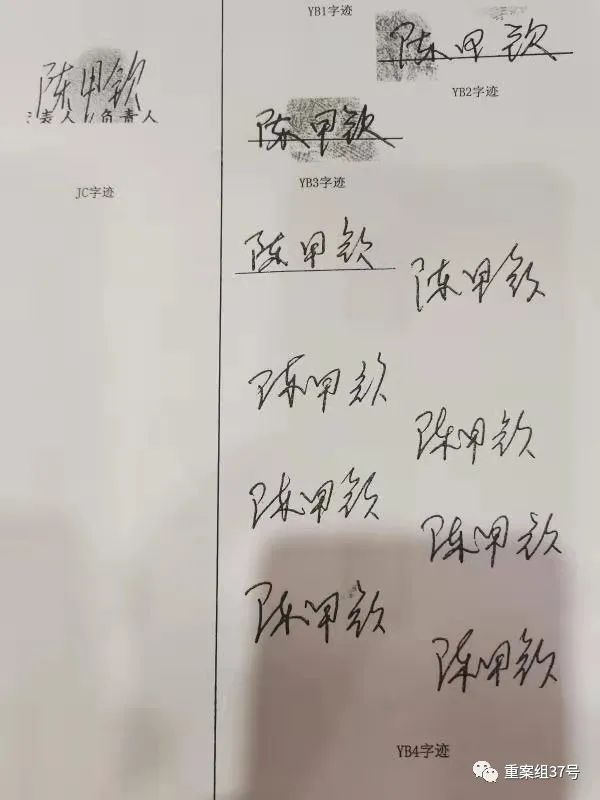 陈甲钦
表人/负责人
JC字迹
YB1字迹
陈甲钦
YB2字迹
陈甲钦
YB3字迹
陈甲钦
陈甲钦
陈甲钦
陈甲钦
陈甲钦
陈甲钦
陈甲钦
陈甲钦
YB4字迹
重案组37号